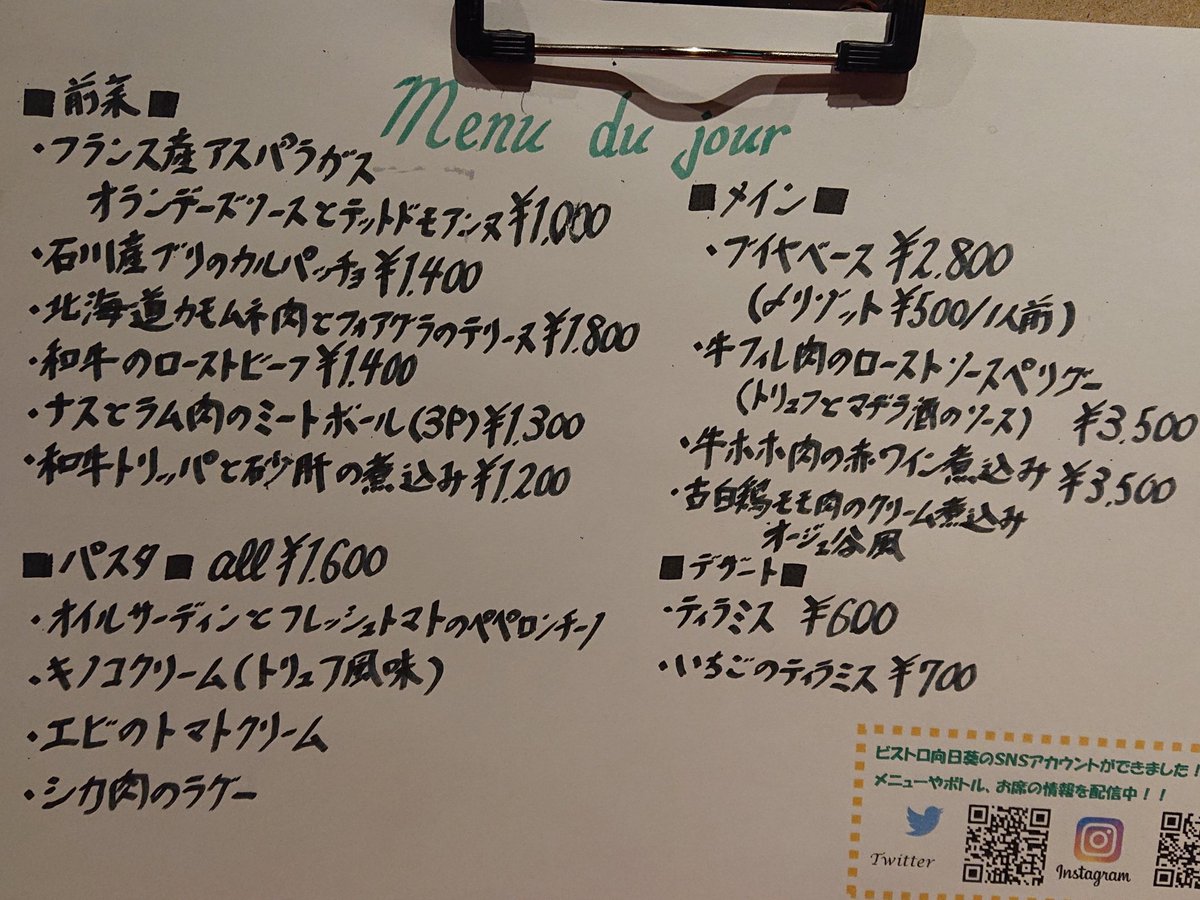 Menu du jour
■前菜■
・フランス産アスパラガス
オランデーズソースとテットドモアンヌ¥1,000
・石川産ブリのカルパッチョ¥1,400
・北海道カモムネ肉とフォアグラのテリーヌ¥1,800
・和牛のローストビーフ¥1,400
・ナスとラム肉のミートボール(3P)¥1,300
・和牛トリッパと砂肝の煮込み¥1,200
■パスタ■ all¥1,600
・オイルサーディンとフレッシュトマトのペペロンチーノ
・キノコクリーム(トリュフ風味)
・エビのトマトクリーム
・シカ肉のラグー
■メイン■
・ブイヤベース ¥2,800
(〆リゾット¥500/1人前)
・牛フィレ肉のローストソースペリグー
(トリュフとマデラ酒のソース) ¥3,500
・牛ホホ肉の赤ワイン煮込み¥3,500
・古白鶏モモ肉のクリーム煮込み
オージュ谷風
■デザート■
・ティラミス ¥600
・いちごのティラミス¥700
ビストロ向日葵のSNSアカウントができました!
メニューやボトル、お席の情報を配信中!!
Twitter
Instagram